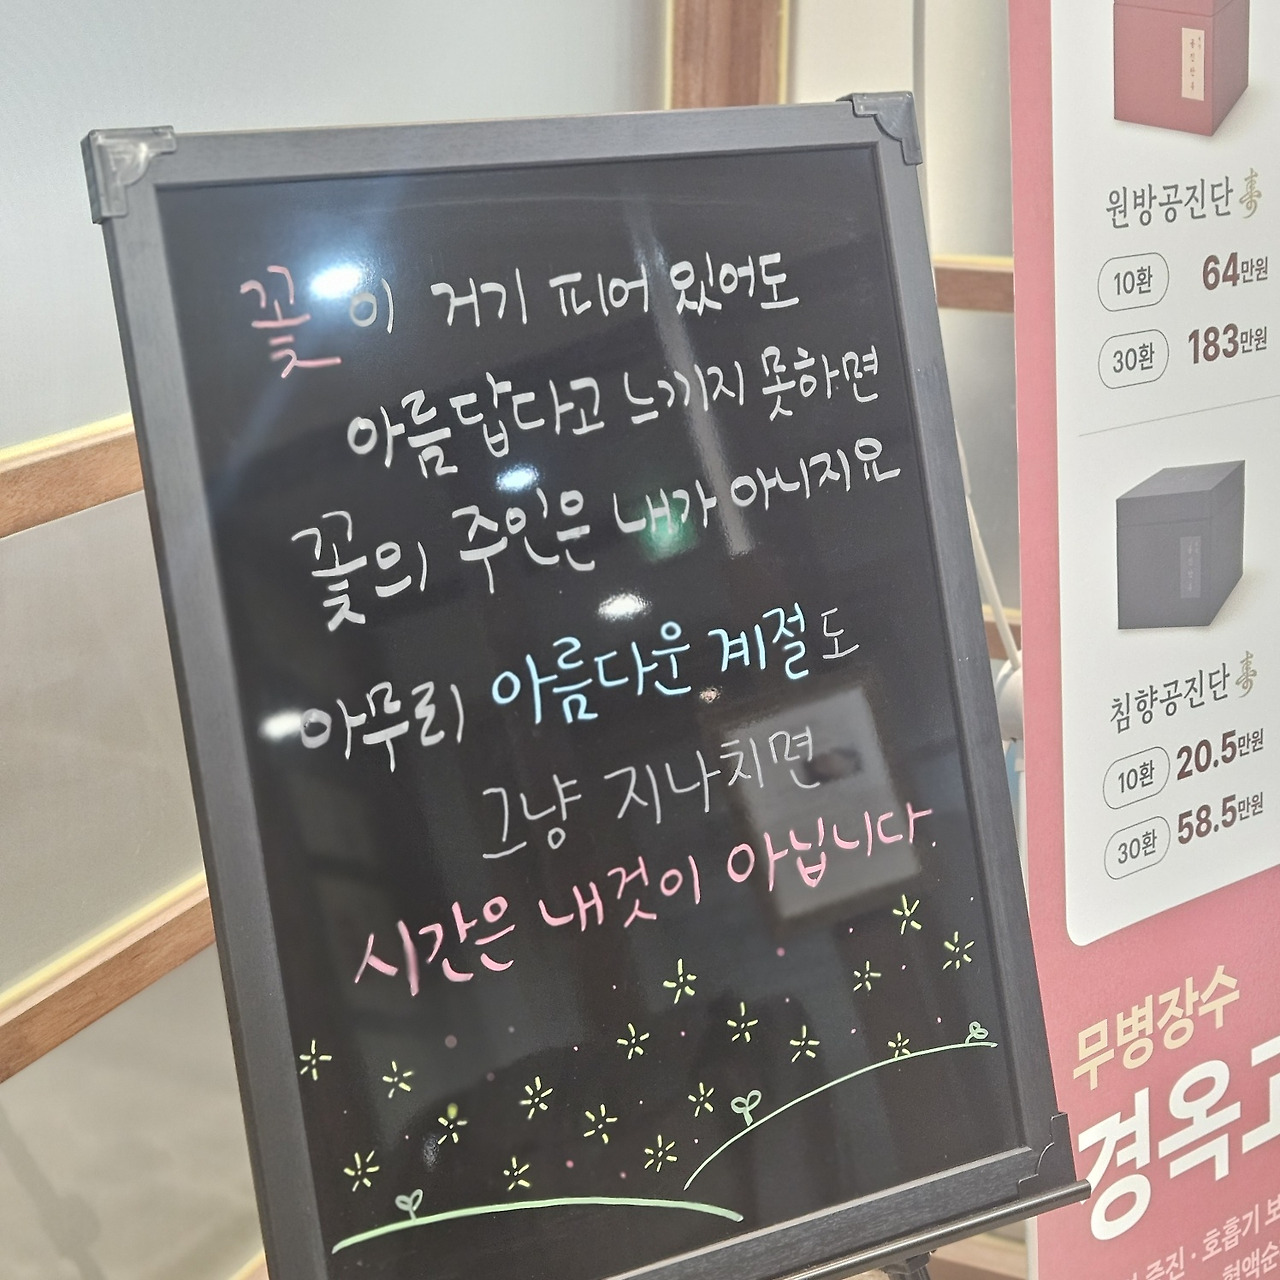 꽃이 거기 피어 있어도
아름답다고 느끼지 못하면
꽃의 주인은 내가 아니지요
아무리 아름다운 계절도
그냥 지나치면
시간은 내것이 아닙니다.
원방공진단 壽
10환 64만원
30환 183만원
침향공진단 壽
10환 20.5만원
30환 58.5만원
무병장수
경옥고
증진 · 호흡기
혈액순